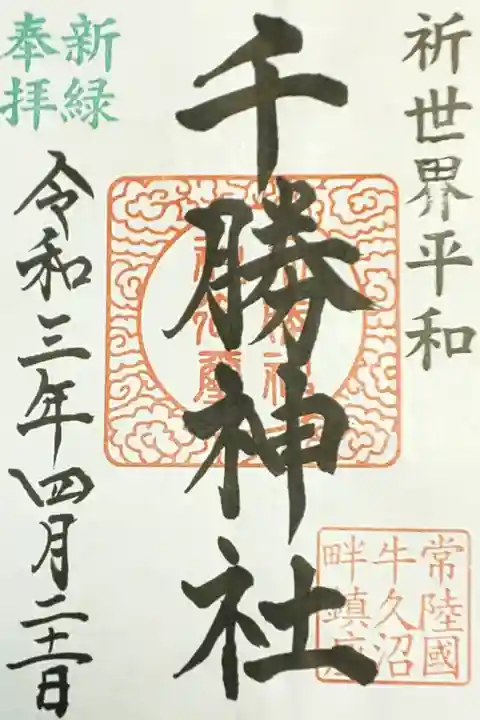 祈世界平和
千勝神社
新緑
奉拝
令和三年四月二十一日
常陸國
牛久沼
畔鎮座